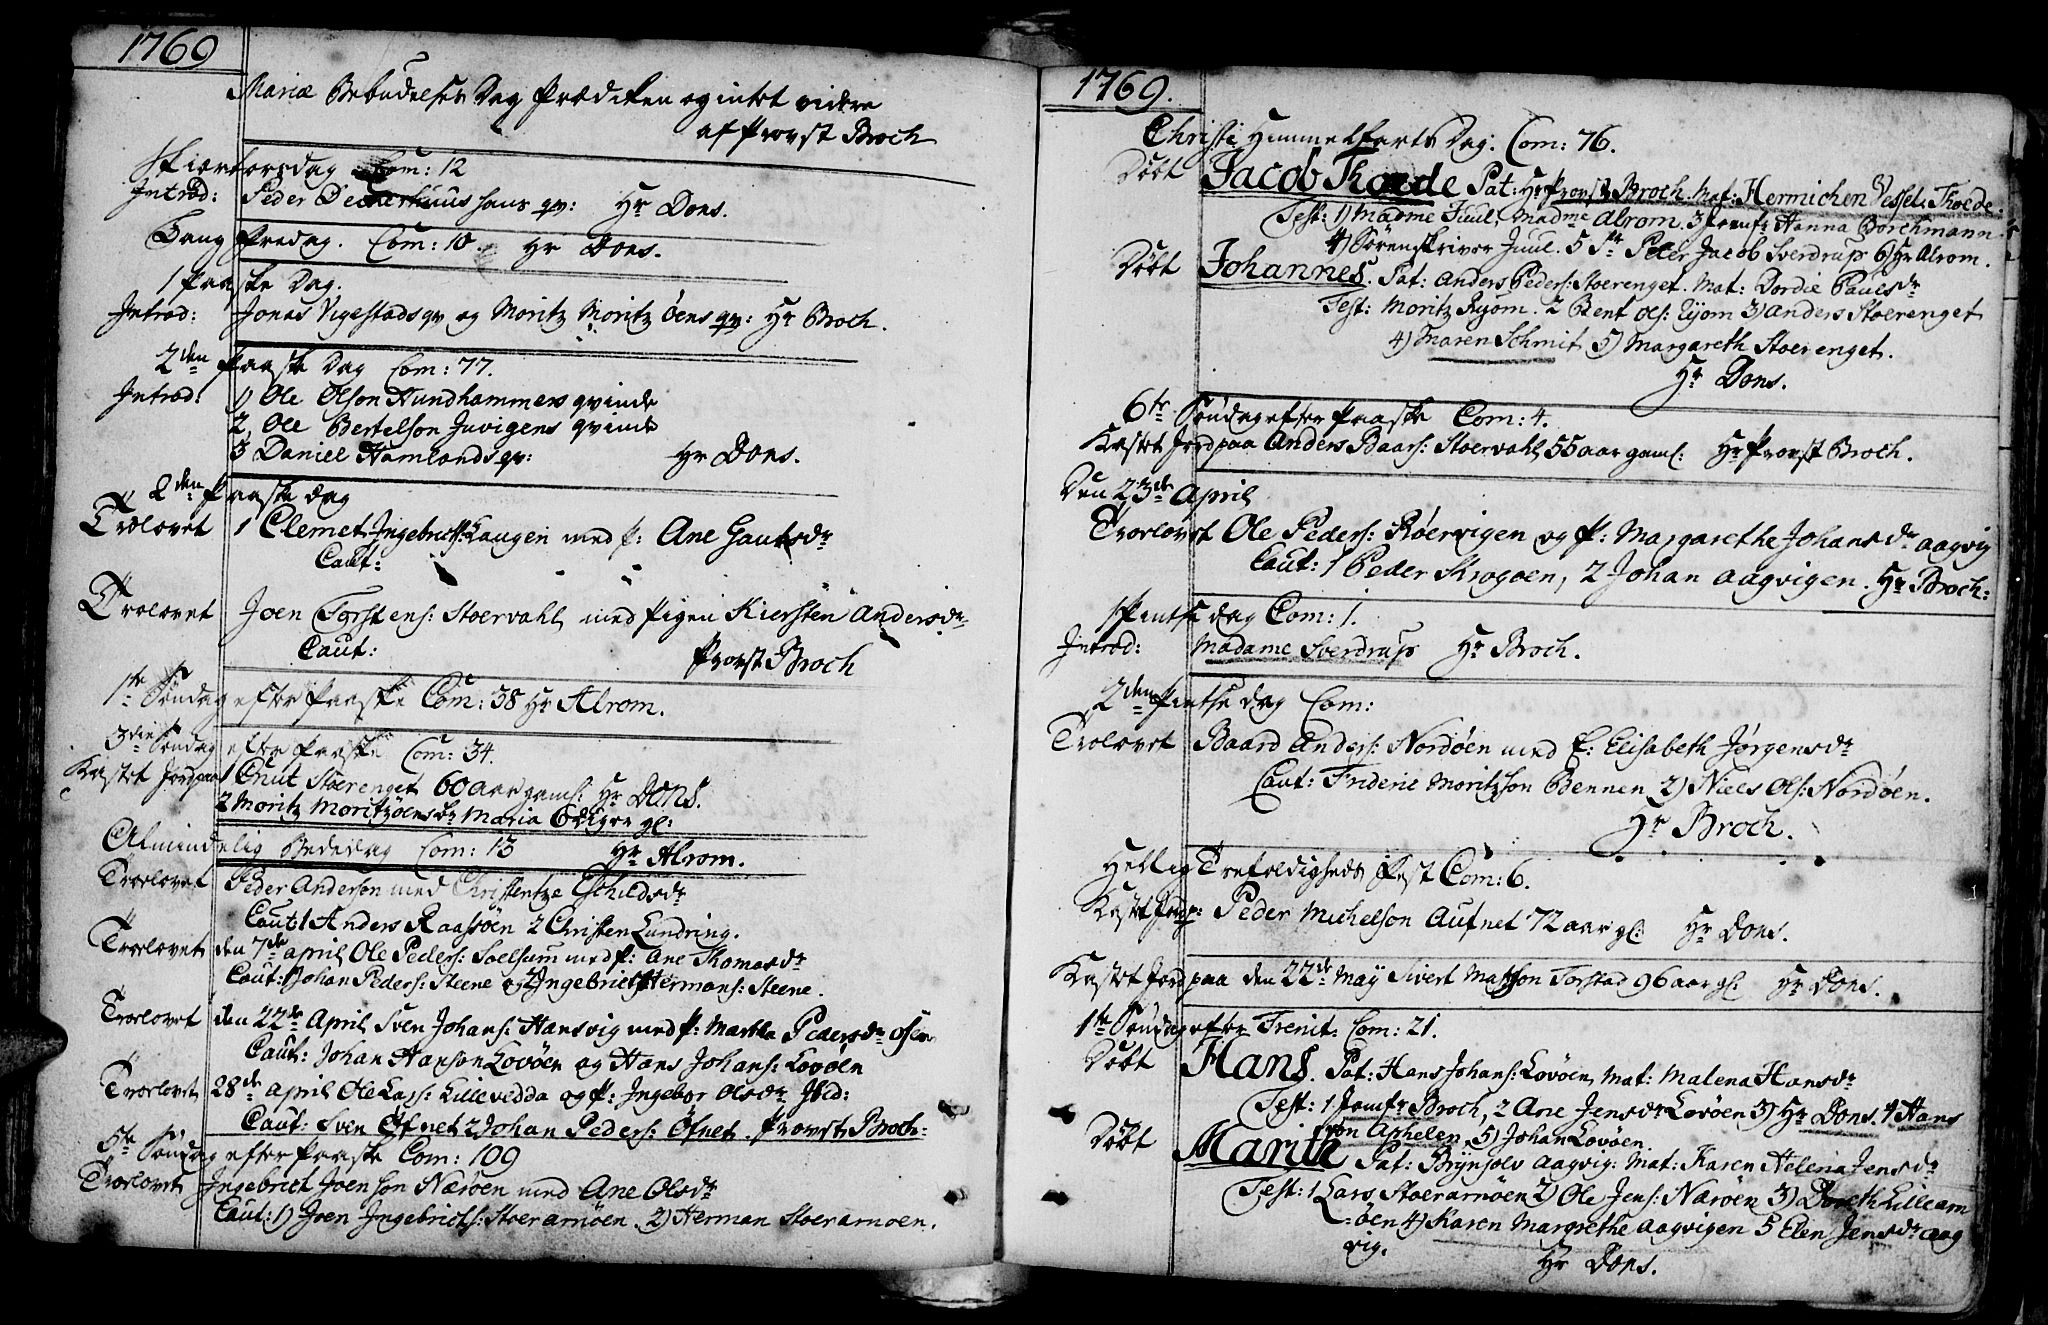 1769
Mariæ Bebudelses Dag Prædiken og intet videre
af Provst Broch
Skiærtorsdag Com: 12
Introd: Peder Deckerhuus hans qv: Hr Dons.
Lang Fredag. Com: 10. Hr Dons.
1 Paaske Dag.
Introd: Jonas Vigestads qv og Moritz Moritzøens qv: Hr Broch.
2den Paaske Dag Com: 77.
Introd: 1) Ole Olson Hundhammers qvinde
2, Ole Bertelson Juvigens qvinde
3 Daniel Hamlands qv: Hr Dons.
2den Paaske dag
Trolovet 1 Clemet Ingebrictss: Laugen med p: Ane Gautsdr
Caut:
Trolovet Joen Torstens: Stoervahl med Pigen Kiersten Andersdr
Caut: Provst Broch
1te Søndag efter Paaske Com: 38 Hr Alrom.
3die Søndag efter Paaske Com: 34.
Kastet Jord paa 1 Cnut Stoerenget 60 Aar gaml: Hr Dons.
2 Moritz Moritzøens br Maria 6 diger gl:
Almindelig Bededag Com: 13 Hr Alrom.
Troelovet Peder Andersen med Christentze Eschildsdr
Caut: 1 Anders Raassøen 2 Christen Lundring.
Troelovet den 7de April Ole Peders: Soelsum med p: Ane Thomasdr
Caut: 1 Johan Peders: Steene og 2 Ingebrict Hermans: Steene.
Troelovet den 22de April Sven Johans: Hansvig med p: Martha Pedersdr
Caut: Johan Hanson Lovøen og Hans Johans: Lovøen
Troelovet 28de April Ole Lass: Lillevedda og p: Ingebor Olsdr
Caut: Sven Øfnet 2 Johan Peders: Øfnet. Provst Broch:
5te Søndag efter Paaske Com: 109
Troelovet Ingebrict Joenson Nærøen med Ane Olsdr
Caut: 1) Joen Ingebricts: Stoeramøen. 2) Herman Stoeramoen.
1769.
Christi Himmelfarts Dag. Com: 76.
Døbt Jacob Thoede Pat: Hr Provst Broch. Mat: Hermichen Vessel. Thoede.
Test: 1) Madme Juul, Madme Alrom. 3 Jomfr Hanna Borchmann
4) Sorenskriver Juul. 5 Sr Peter Jacob Sverdrup 6) Hr Alrom.
Døbt Johannes. Pat: Anders Peders: Stoerenget. Mat: Dordie Paulsdr
Test: Moritz Ryom. 2 Bent Ols: Ryom 3) Anders Stoerenget
4) Maren Schmit 5) Margareth Stoerenget.
Hr Dons.
6te Søndag efter Paaske Com: 4.
Kastet Jord paa Anders Baars: Stoervahl 55 aar gaml: Hr Provst Broch.
Den 23de April
Troelovet Ole Peders: Røervigen og P: Margarethe Johansdr Aagvig
Caut: 1 Peder Kragøen, 2 Johan Aagvigen. Hr Broch:
1 Pintse dag Com: 1.
Introd: Madame Sverdrup Hr Broch.
2den Pintse dag Com:
Trolovet Baard Anders: Nordøen med E: Elisabeth Jørgensdr
Caut: Frideric Moritzson Bennen 2) Niels Ols: Nordøen.
Hr Broch.
Hellig Trefoldigheds Fest Com: 6.
Kastet Jord p: Peder Michelson Aufnet 72 aar gl: Hr Dons.
Kastet Jord paa den 22de May Sivert Matson Torstad 96 aar gl: Hr Dons.
1te Søndag efter Trenit. Com: 21.
Døbt Hans. Pat: Hans Johans: Lovøen, Mat: Malena Hansdr
Test: 1 Jomfr Broch, 2 Ane Jensdr Lovøen 3) Hr Dons. 4 Hans
von Aphelen 5) Johan Lovøen
Døbt Marith Pat: Brynjolv Aagvig: Mat: Karen Helena Jensdr
Test: 1 Lars Stoeramøen 2) Ole Jens: Nærøen 3) Doreth Lilleam
:øen 4) Karen Margrethe Aagvigen 5 Elen Jensdr Aag
vig.
Hr Dons.